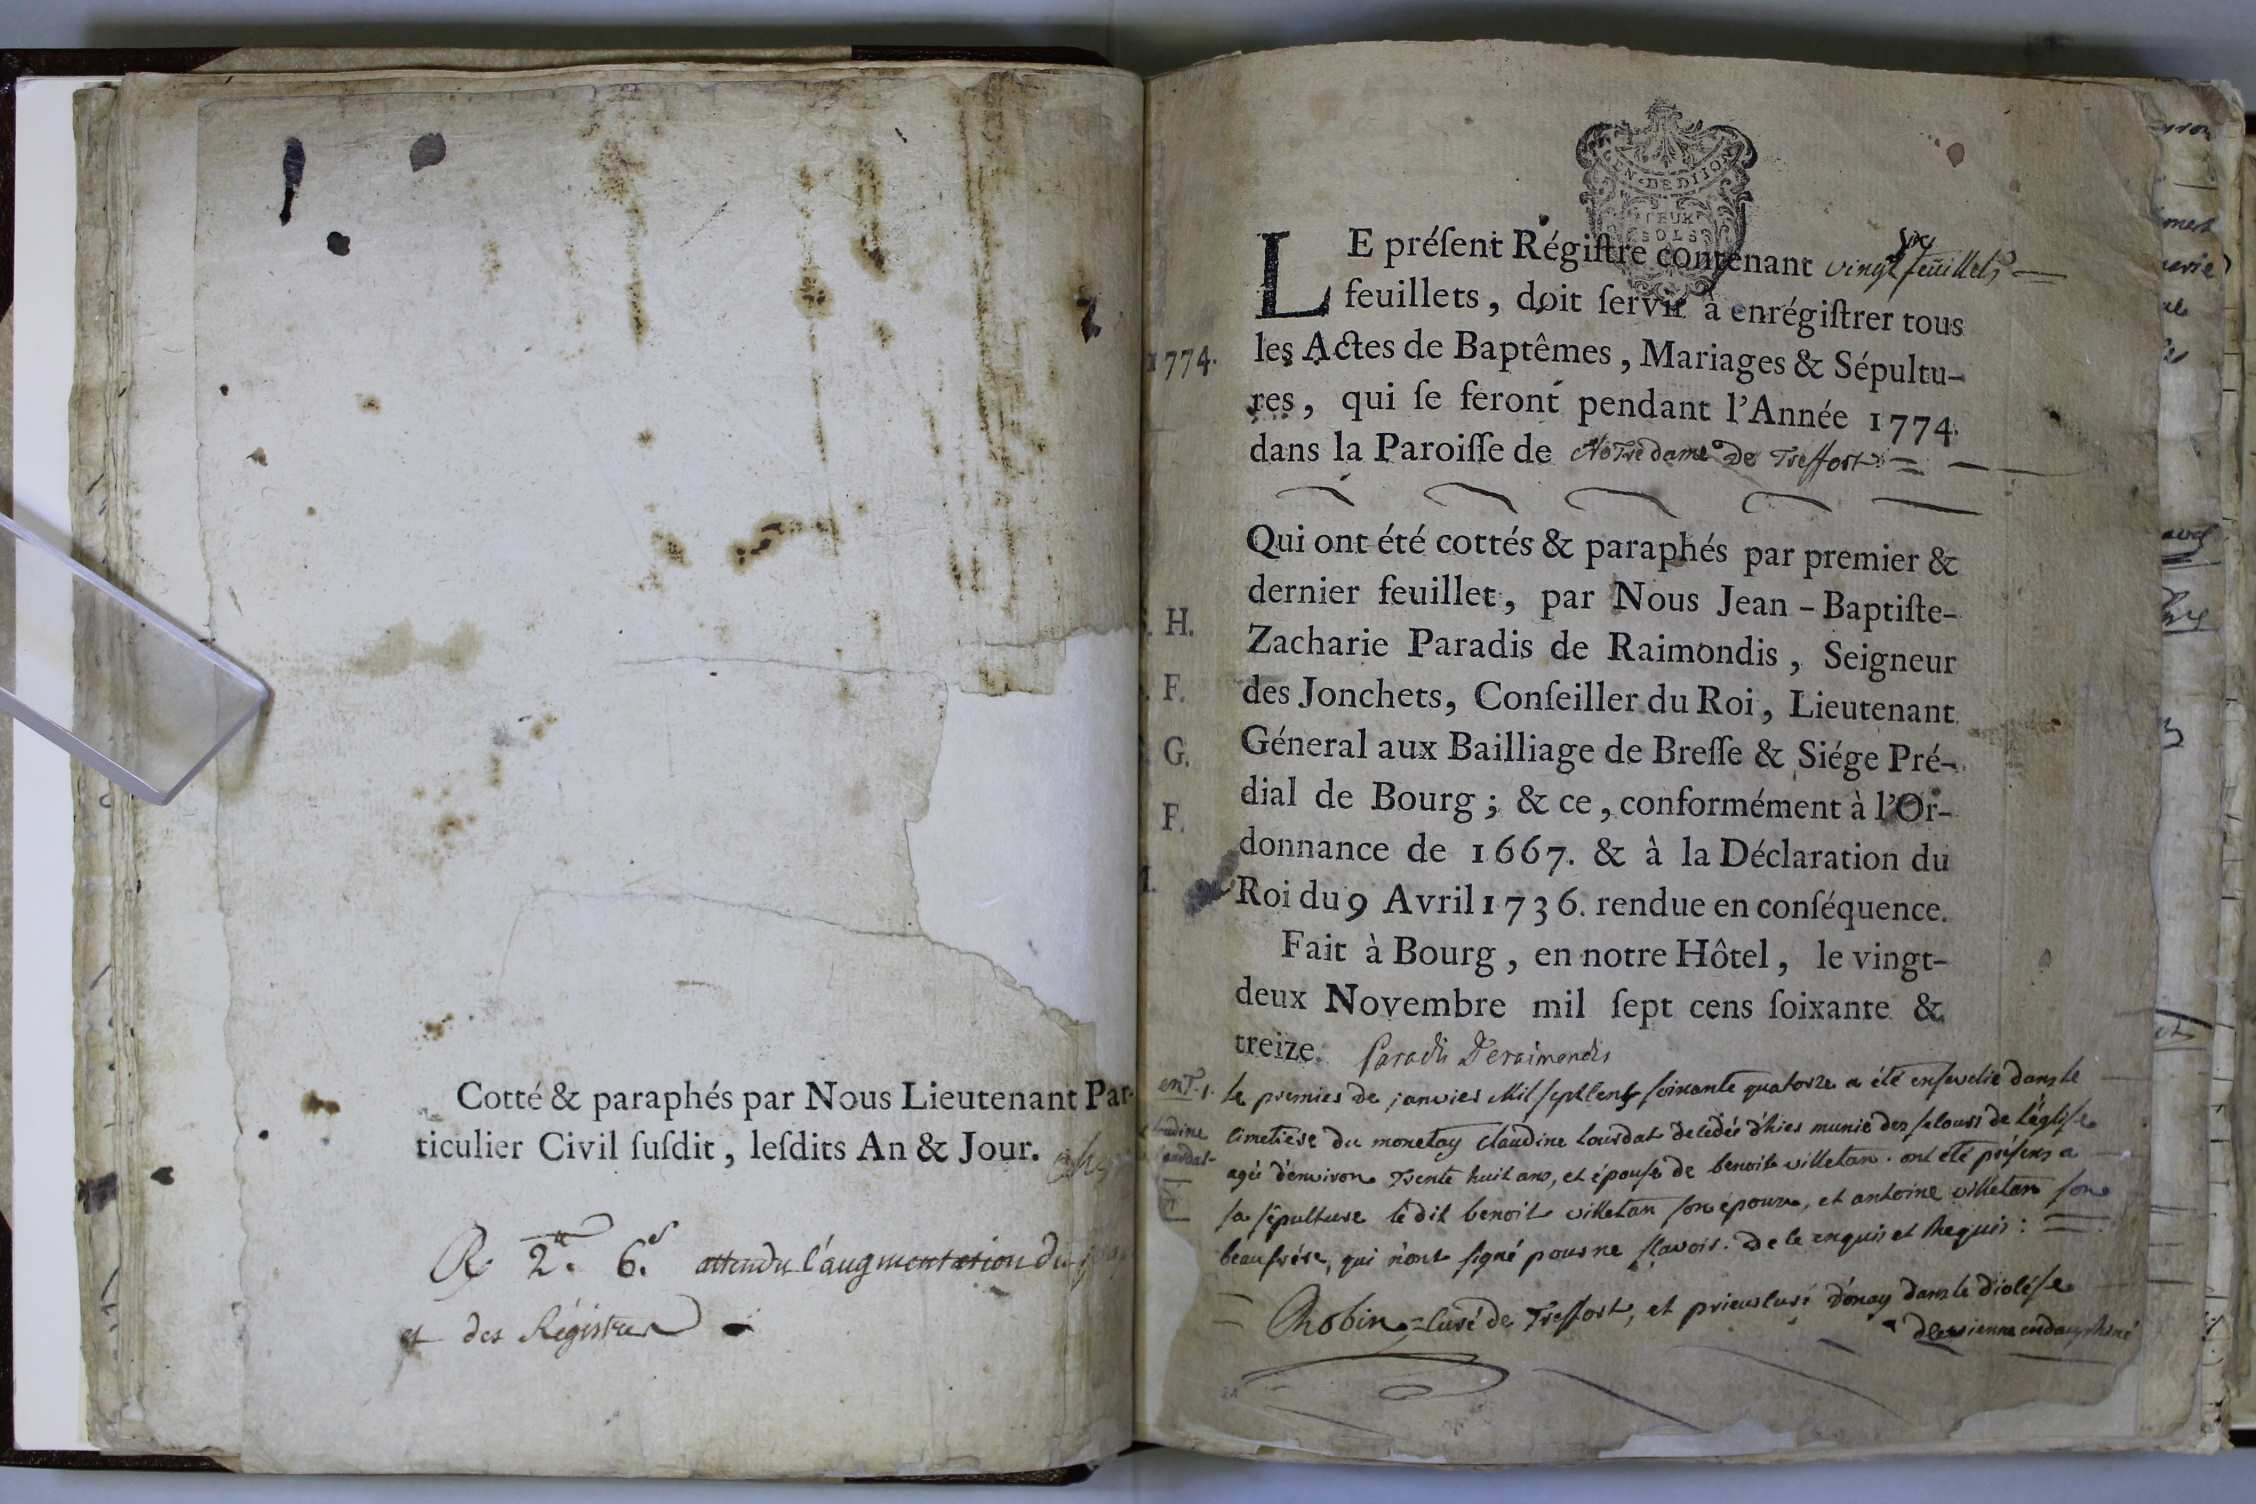 Cotté & paraphés par Nous Lieutenant Par-
ticulier Civil ſuſdit, leſdits An & Jour.
R. 2.# 6.s attendu l'augmentation du
et des Régistres
GEN. DE DIJON
DEUX
SOLS
1774.
LE préſent Régiſtre contenant vingt six feüillets
feuillets, doit ſervir à enrégiſtrer tous
les Actes de Baptêmes, Mariages & Sépultu-
res, qui ſe feront pendant l'Année 1774.
dans la Paroiſſe de Notre dame De Treffort
Qui ont été cottés & paraphés par premier &
dernier feuillet, par Nous Jean-Baptiſte-
Zacharie Paradis de Raimondis, Seigneur
des Jonchets, Conſeiller du Roi, Lieutenant
Géneral aux Bailliage de Breſſe & Siége Pré-
dial de Bourg; & ce, conformément à l'Or-
donnance de 1667. & à la Déclaration du
Roi du 9 Avril 1736. rendue en conſéquence.
Fait à Bourg, en notre Hôtel, le vingt-
deux Novembre mil ſept cens ſoixante &
treize. Paradis Deraimondis
H.
F.
G.
F.
ent. 1.
le premier de janvier Mil sept cents soixante quatorze a été ensevelie dans le
cimetiere du monetay Claudine Lourdat decédée d'hier munie des secours de l'église
agée d'environ trente huit ans, et épouse de benoit villetan. ont été présens a
sa sépulture le dit benoit villetan son époux, et antoine villetan son
beaufrére, qui n'ont signé pour ne sçavoir. De le enquis et Requis:
Robin = Curé de Treffort, et prieur curé d'ornay dans le diocése
de vienne en dauphiné